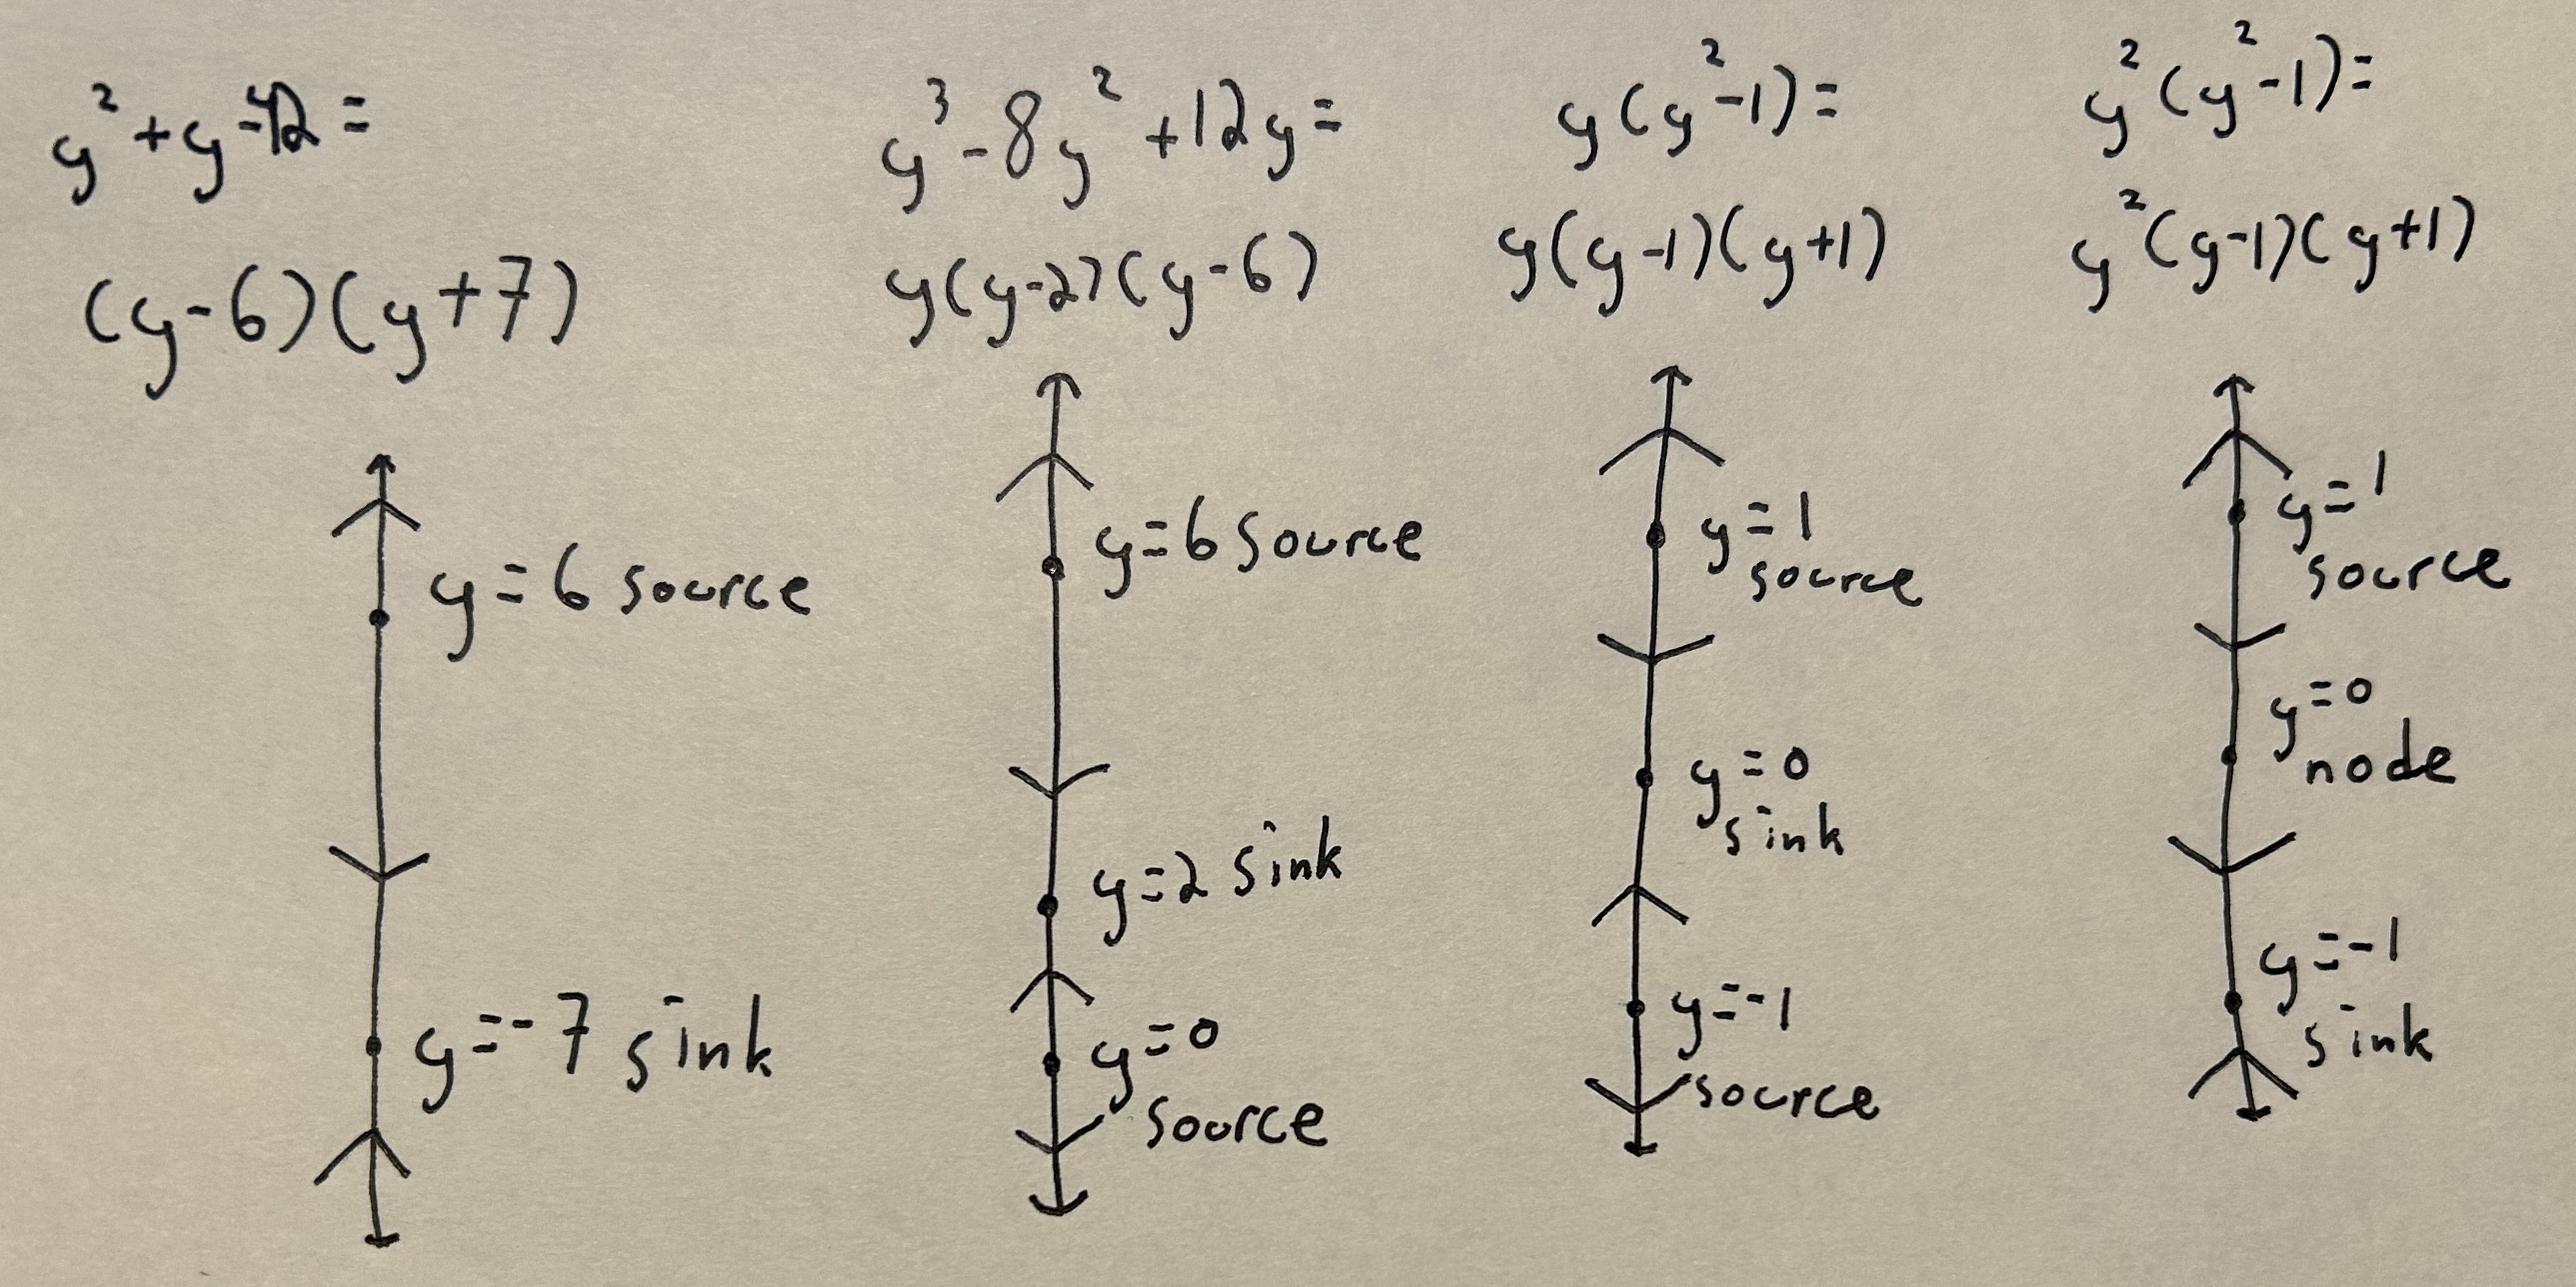 y²+y-42=
(y-6)(y+7)
y=6 source
y=-7 sink
y³-8y²+12y=
y(y-2)(y-6)
y=6 source
y=2 sink
y=0
source
y(y²-1)=
y(y-1)(y+1)
y=1
source
y=0
sink
y=-1
source
y²(y²-1)=
y²(y-1)(y+1)
y=1
source
y=0
node
y=-1
sink